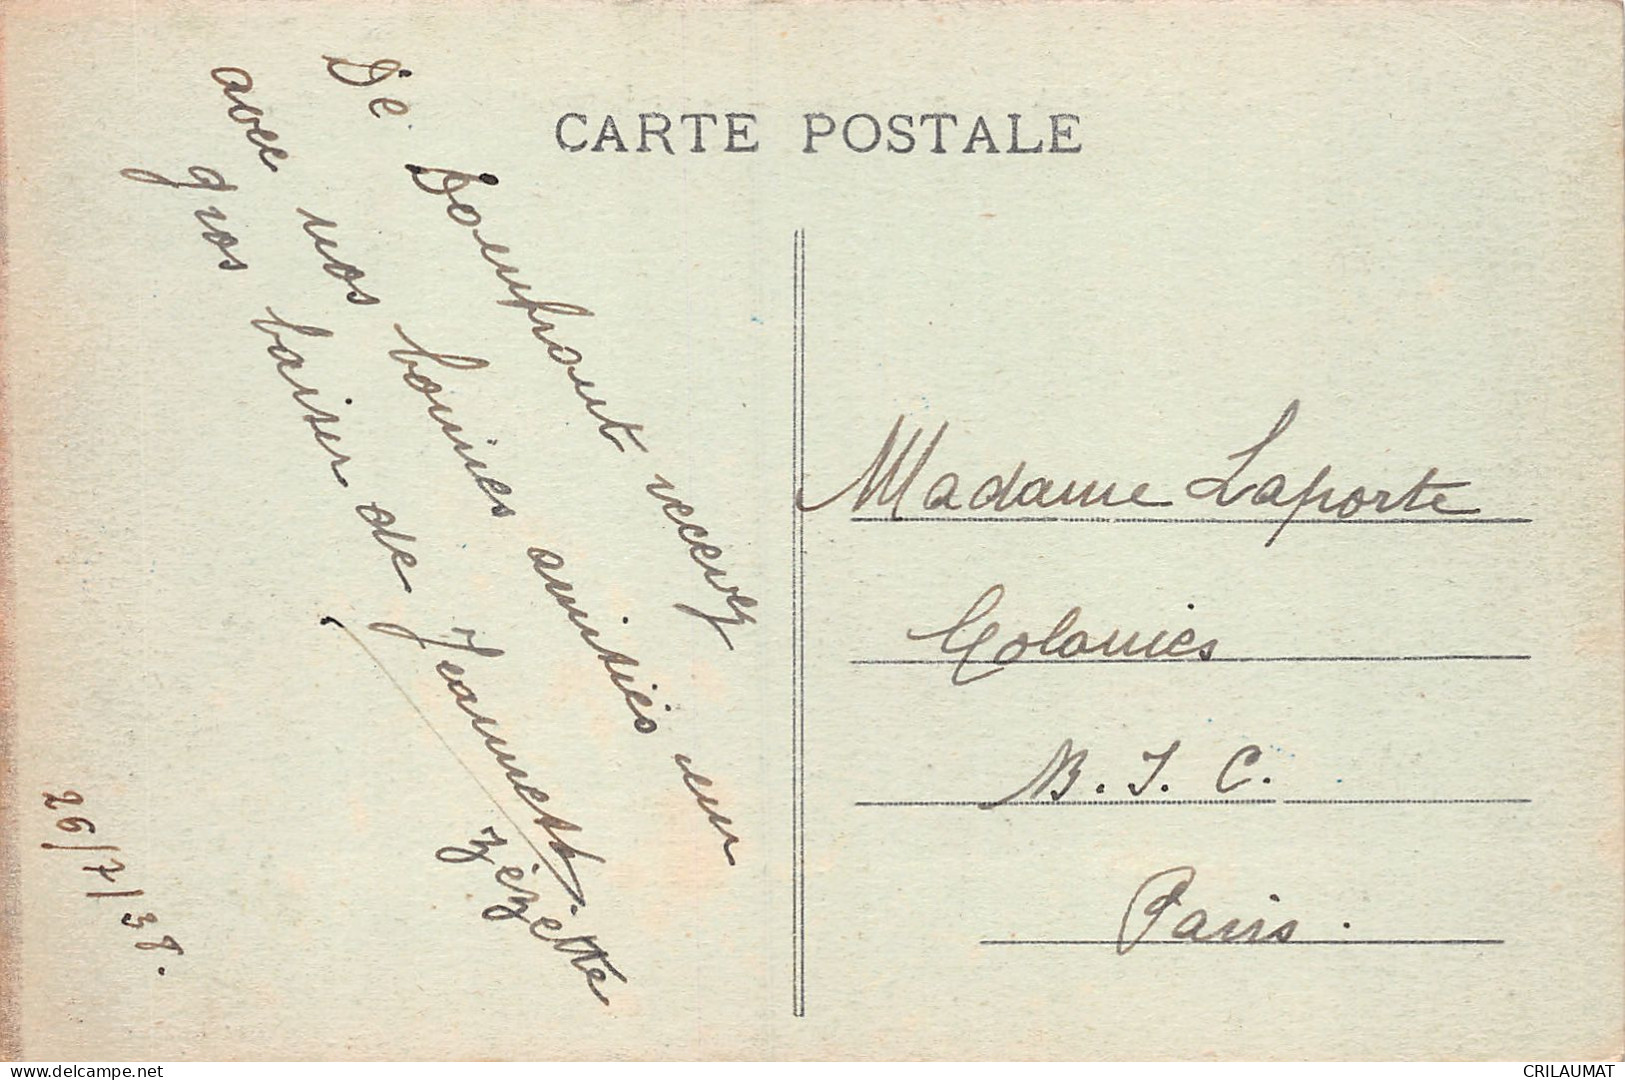 CARTE POSTALE
De Domfront recevez
avec nos bonnes amitiés un
gros baiser de Jeannett.
Zézette
26/7/38.
Madame Laporte
Colonies
B. I. C.
Paris.
www.delcampe.net
CRILAUMAT